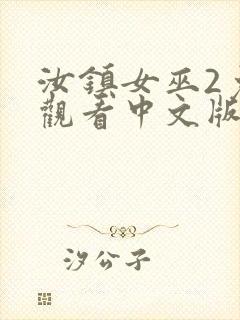 汝鎮女巫2
觀看中文版
汐公子